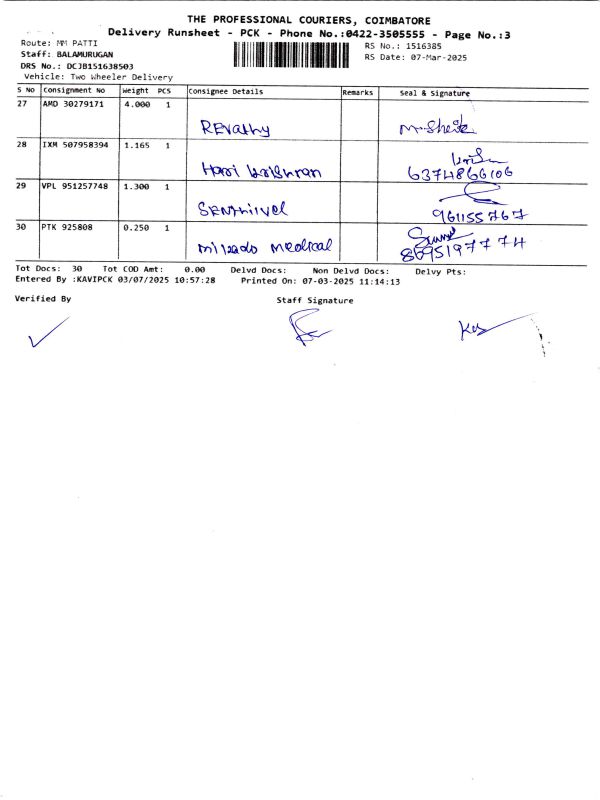 THE PROFESSIONAL COURIERS, COIMBATORE
Delivery Runsheet - PCK - Phone No.:0422-3505555 - Page No.:3
Route: MM PATTI
RS No.: 1516385
Staff: BALAMURUGAN
RS Date: 07-Mar-2025
DRS No.: DCJB151638503
Vehicle: Two Wheeler Delivery
S No Consignment No Weight PCS Consignee Details Remarks Seal & Signature
27 AMD 30279171 4.000 1
REvathy
28 IXM 507958394 1.165 1
Hari krishnan 6374866106
29 VPL 951257748 1.300 1
SENthilvel 961155767
30 PTK 925808 0.250 1
medical 8695197774
Tot Docs: 30 Tot COD Amt: 0.00 Delvd Docs: Non Delvd Docs: Delvy Pts:
Entered By :KAVIPCK 03/07/2025 10:57:28 Printed On: 07-03-2025 11:14:13
Verified By Staff Signature